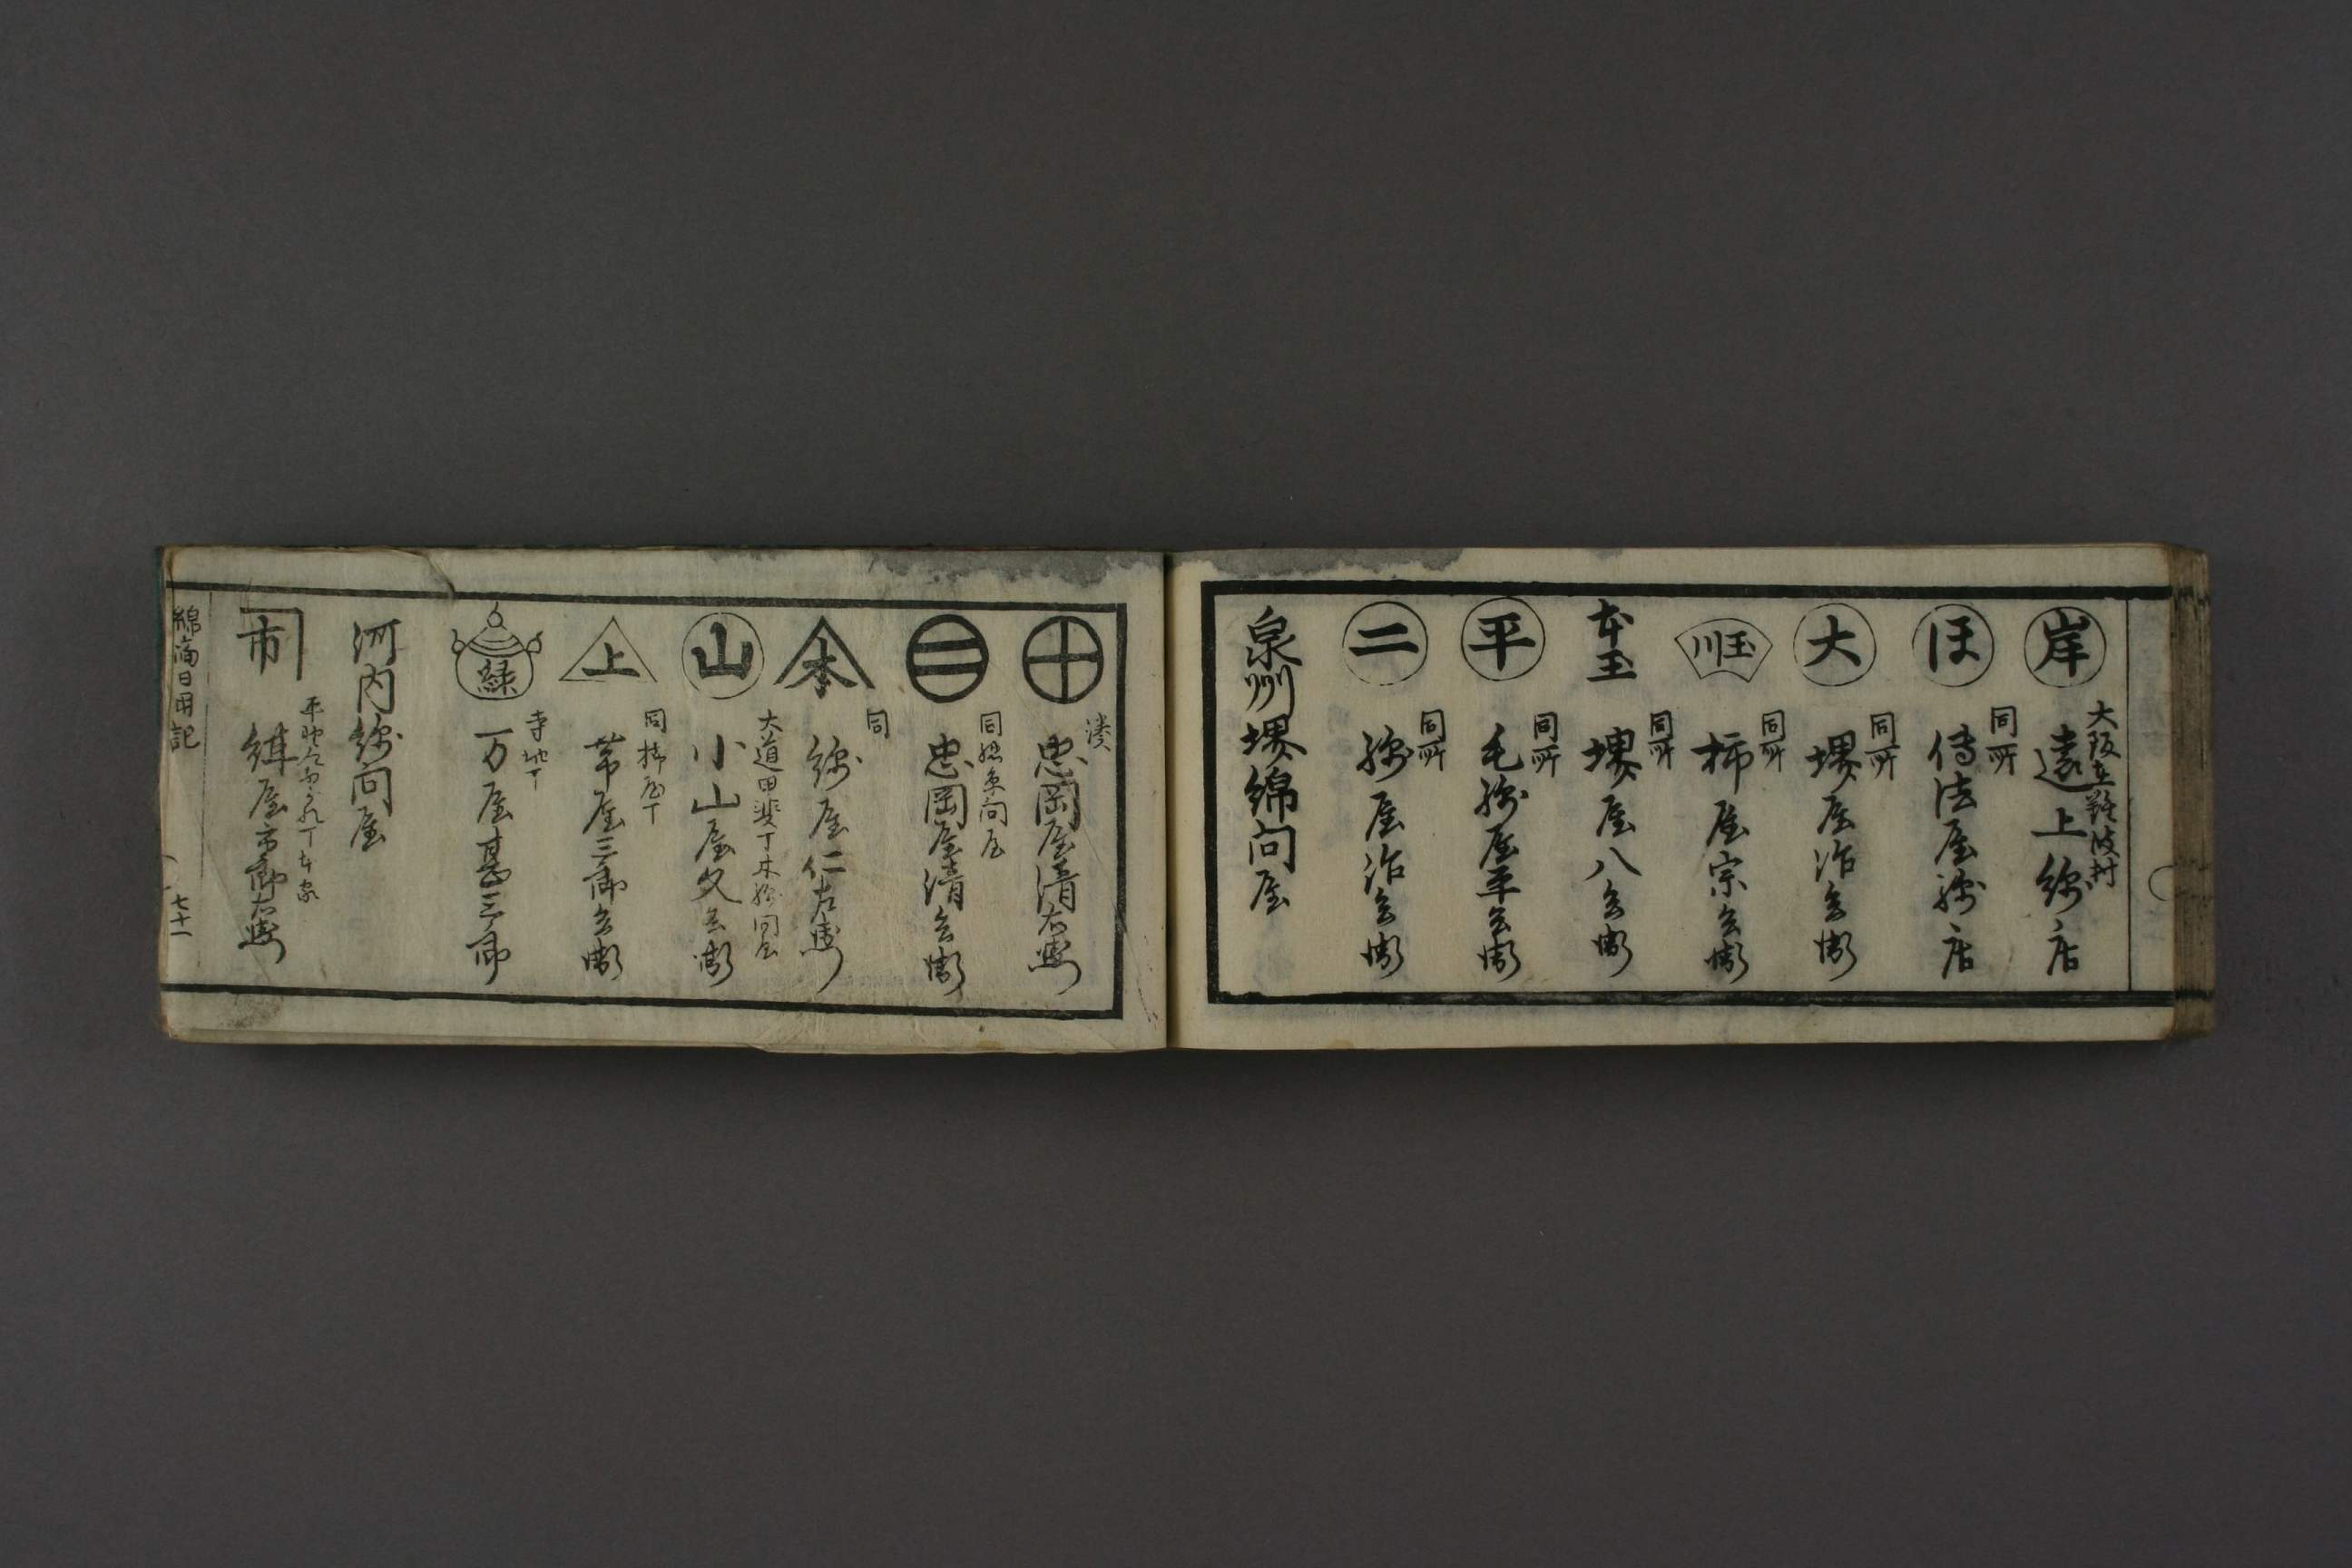 岸 大阪在難波村 遠上綿店
ほ 同所 傳法屋綿店
大 同所 堺屋治兵衛
玉川 同所 柿屋宗兵衛
本玉 同所 堺屋八兵衛
平 同所 毛綿屋平兵衛
二 同所 綿屋治兵衛
泉州堺綿問屋
十 湊 忠岡屋清右衛門
二 同 忠岡屋清兵衛
本 同 綿屋仁左衛門
山 大道甲斐丁木綿問屋 小山屋久兵衛
上 同 帯屋三郎兵衛
緑 寺地丁 万屋甚三郎
河内綿問屋
市 平野
綿商日用記 七十一